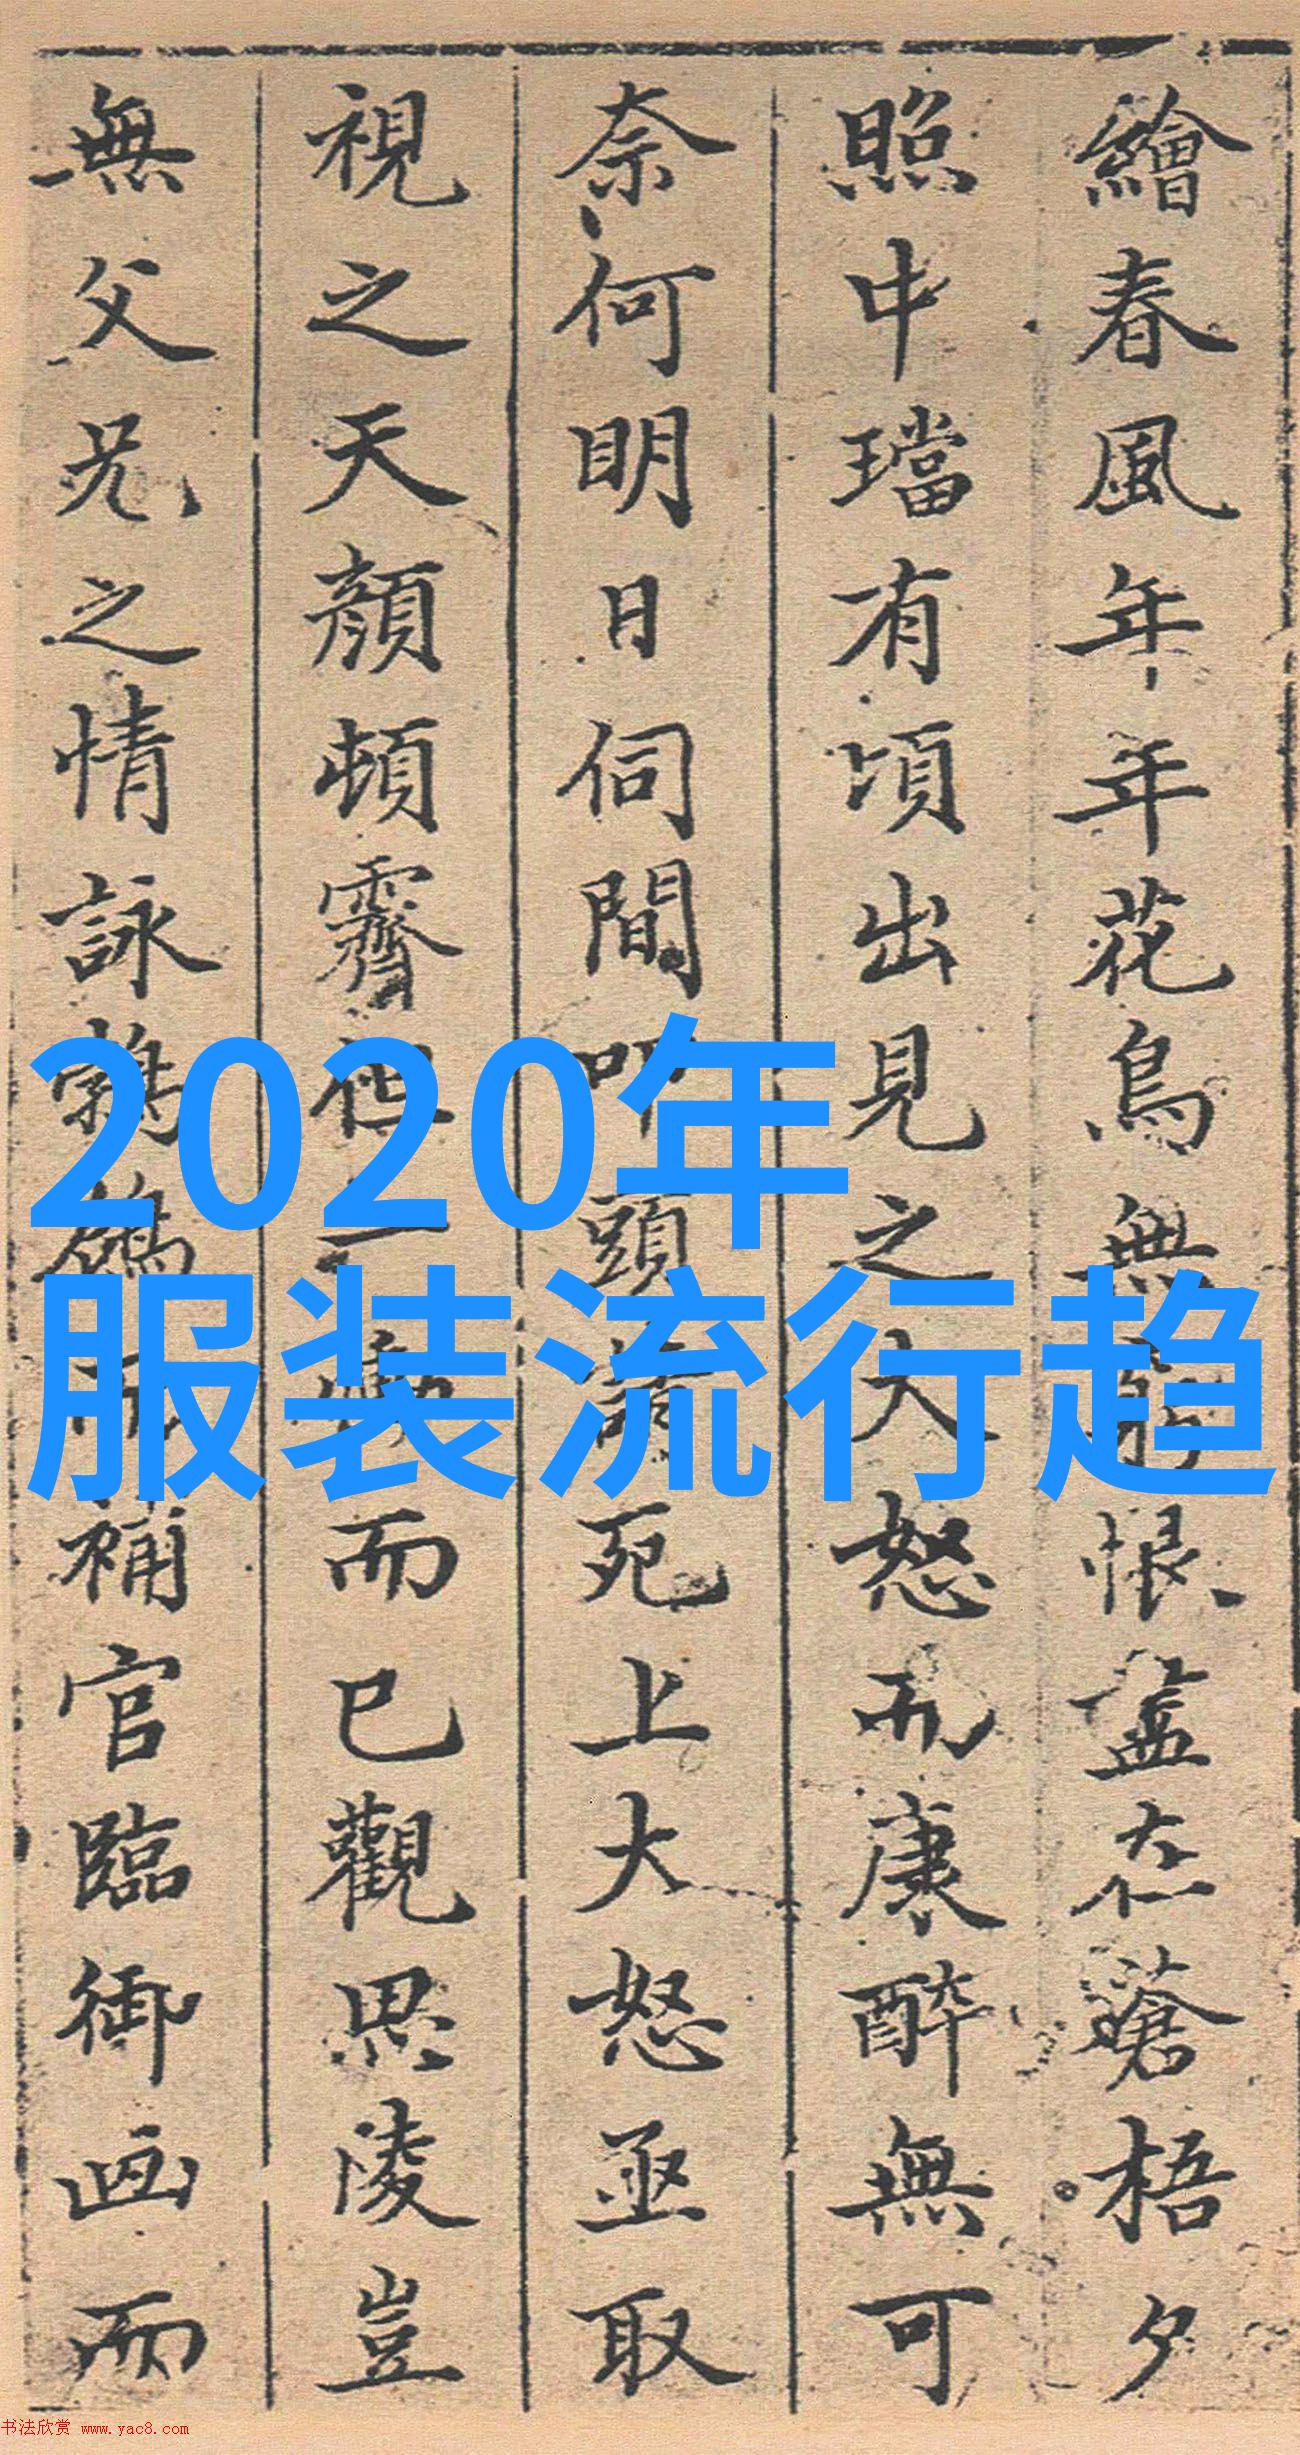 繪春風年年花鳥無恨盡在蒼梧夕
照中璫有頃出見之大怒而康醉無可
奈何明日伺間叩頭請死上大怒亟取
視之天顏頓霽但一慟而已觀思陵豈
無父兄之情詠鶺鴒而補官臨御画而
2020年
服装流行趋
书法欣赏 www.yac8.com